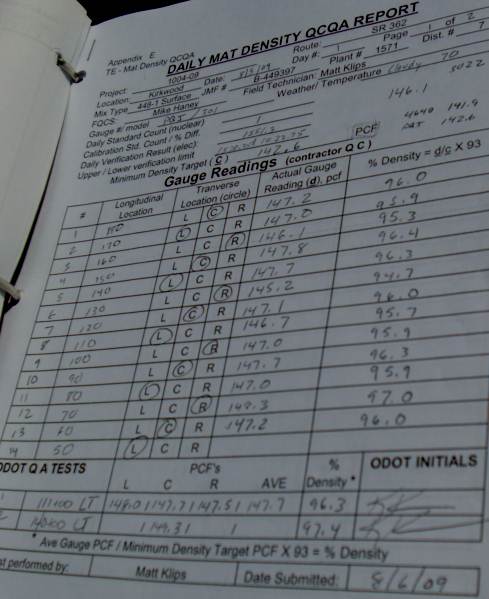 Appendix E
TE - Mat Density QCQA
DAILY MAT DENSITY QCQA REPORT
Project 1004-09 Date: 8/5/09 Route: SR 362 Page 1 of 2
Location: Kirkwood JMF # B-449397 Day #: 1 Plant # 1571 Dist. # 7
Mix Type 448-1 Surface Field Technician: Matt Klips
FQCS: Mike Haney Weather/ Temperature Cloudy 70
Gauge #/ model 5022
Daily Standard Count (nuclear) 146.1
Calibration Std. Count / % Diff. 141.9
Daily Verification Result (elec): 142.6
Upper / Lower verification limit
Minimum Density Target (C) 142.6 PCF
Gauge Readings (contractor Q C)
# Longitudinal Location Tranverse Location (circle) Actual Gauge Reading (d), pcf % Density = d/c X 93
1 L C R 147.2 96.0
2 170 L C R 147.0 95.9
3 160 L C R 146.1 95.3
4 150 L C R 147.8 96.4
5 140 L C R 147.7 96.3
6 130 L C R 145.2 94.7
7 120 L C R 147.1 96.0
8 110 L C R 146.7 95.7
9 100 L C R 147.0 95.9
10 90 L C R 147.7 96.3
11 80 L C R 147.0 95.9
12 70 L C R 97.0
13 60 L C R 147.2 96.0
14 50 L C R
ODOT Q A TESTS PCF's % Density * ODOT INITIALS
L C R AVE
1 111+00 LT 148.0 147.7 147.5 147.7 96.3
2 LT 149.3 97.4
* Ave Gauge PCF / Minimum Density Target PCF X 93 = % Density
performed by: Matt Klips Date Submitted: 8/6/09